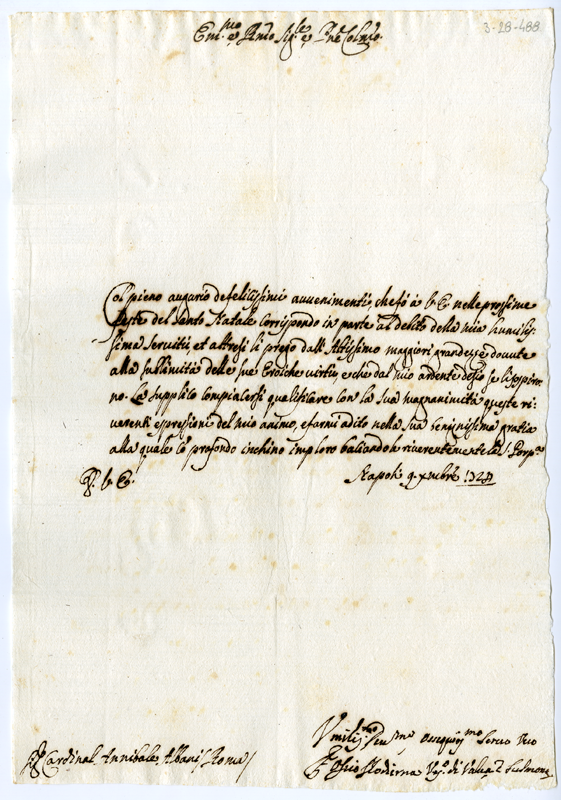 3-28-488
Em.mo e Rmo Sig.re e Pne Colmo
Col pieno augurio de felicissimi avvenimenti, che fò à V. E. nelle prossime
feste del Santo Natale corrispondo in parte al debito della mia humilis-
sima servitù, et altresi li prego dall'Altissimo maggiori grandezze dovute
alla sublimità delle sue Eroiche virtù, e che dal mio ardente desio se li sospira-
no. La supplico compiacersi qualificare con la sua magnanimità queste ri-
verenti espressioni del mio animo, e farmi adito nella sua benignissima gratia
alla quale cō profondo inchino imploro baciandole riverentemente la S. Porpra
D. V. E. Napoli 9 xmbre
Cardinal Annibale Albani Roma
Umiliss.mo Dev.mo Osseqq.mo Servo Vro
Vo di Valva e Sulmona